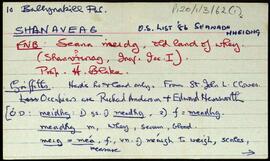 10 Ballynakill Par. P120/1/3/62(i)
SHANAVEAG O.S. LIST '86 SEANADH
MHEIDHG
FNB: Seann meidhg, old land of whey
(Shanaveag, Inq. Gee. I)
Prop. H. Blake
Griffiths. Herds ho & land only. From St John L. Clowes.
Less Occupiers are Richard Anderson & Edward Hemsworth
[Ó D: meidhg: 1) s.v. meidhg, 2) f = meidhg.
meadhg m, whey, serum, blood.
meig = meá, f, vn.) meigh to weigh, scales,
measure